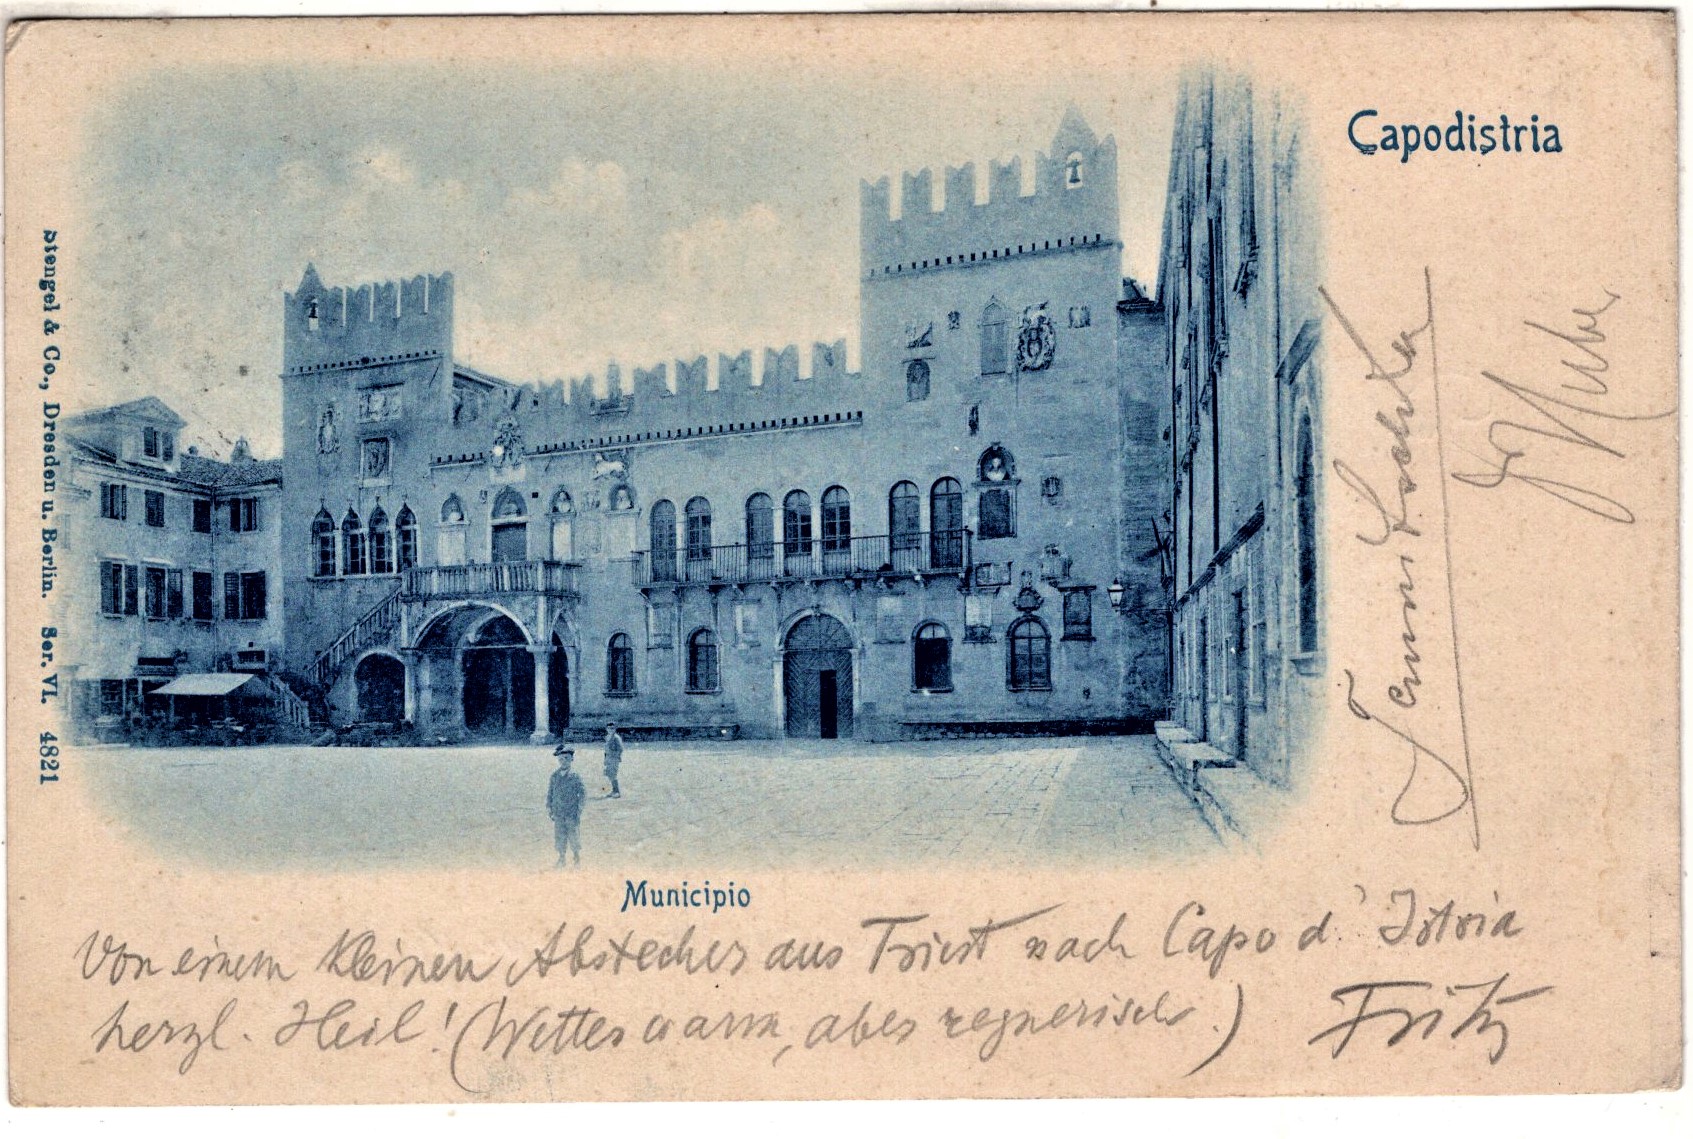 Capodistria
Stengel & Co., Dresden u. Berlin. Ser. VI. 4821
Municipio
Von einem kleinen Abstecher aus Triest nach Capo d'Istria
herzl. Heil! (Wetter warm, aber regnerisch.) Fritz